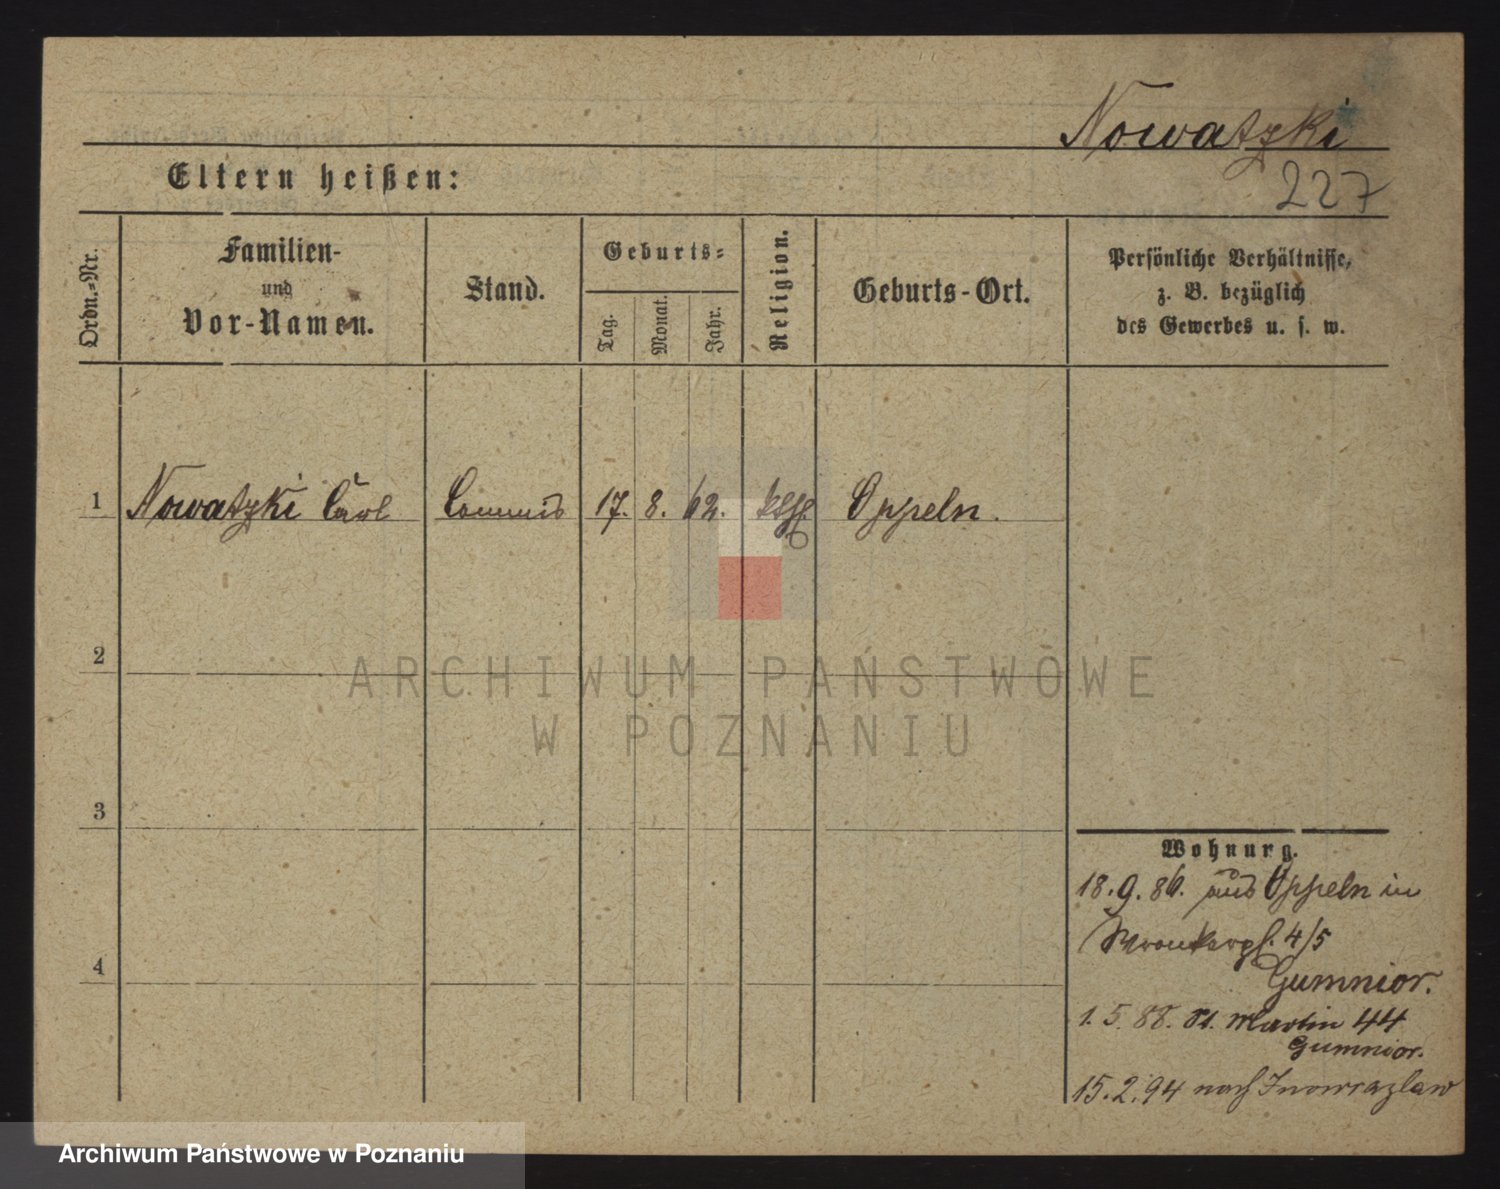 Nowatzki
Eltern heißen:
227
Ordn.-Nr.
Familien-
und
Vor-Namen.
Stand.
Geburts-
Tag.
Monat.
Jahr.
Religion.
Geburts-Ort.
Persönliche Verhältnisse,
z. B. bezüglich
des Gewerbes u. s. w.
1 Nowatzki Carl Commis 17. 8. 62. Oppeln.
2
3
4
ARCHIWUM PAŃSTWOWE
W POZNANIU
Wohnung.
18.9.86. aus Oppeln in
Wronkerpl. 4/5
Gumnior.
1.5.88. St. Martin 44
Gumnior.
15.2.94 nach Inowrazlaw
Archiwum Państwowe w Poznaniu